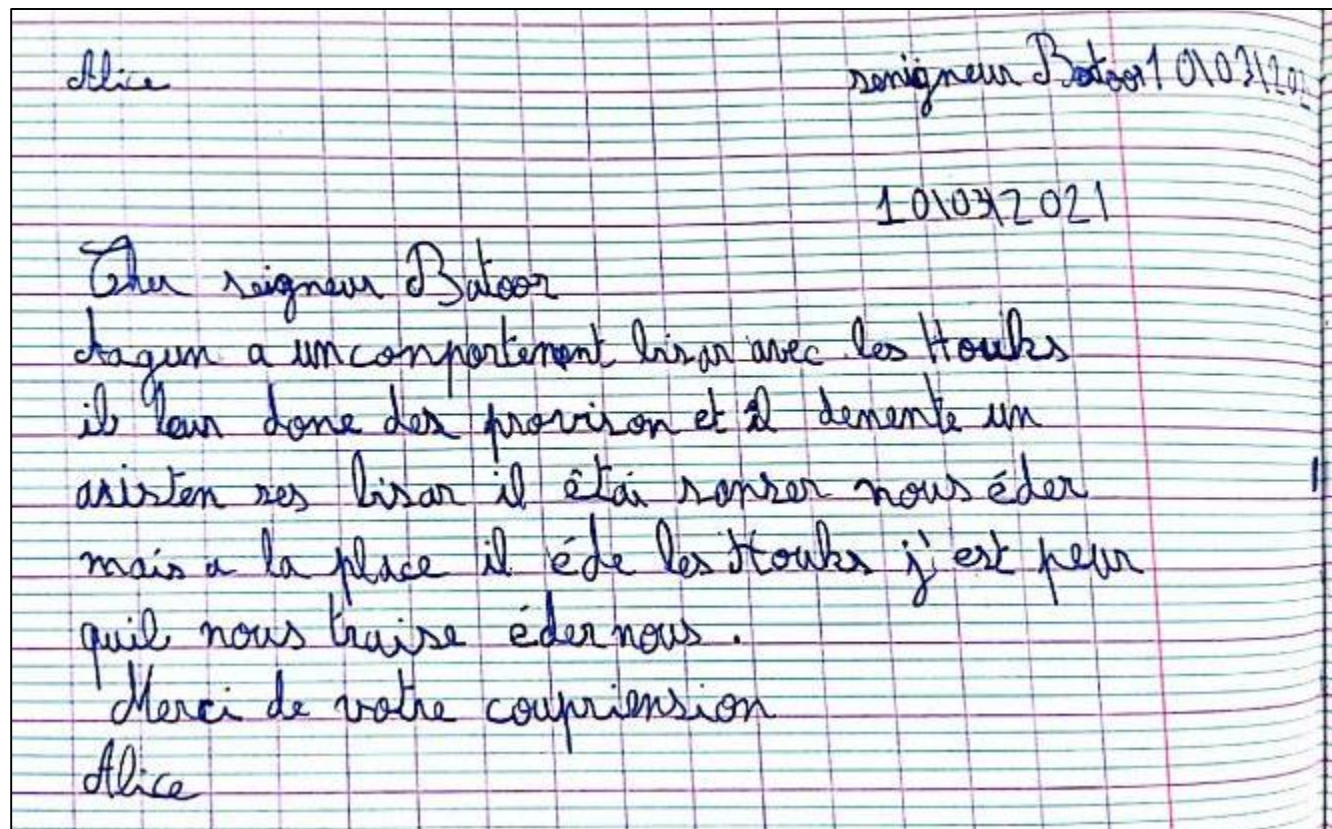 Alice senigneur Batoor 10\03\202
10\03\2021
Cher seigneur Batoor
Aagun a un conportement bisar avec les Houks
il leur done des provison et il demente un
asisten ses bisar il êtai sanser nous éder
mais a la place il éde les Houks j'est peur
quil nous traise éder nous.
Merci de votre coupriension
Alice